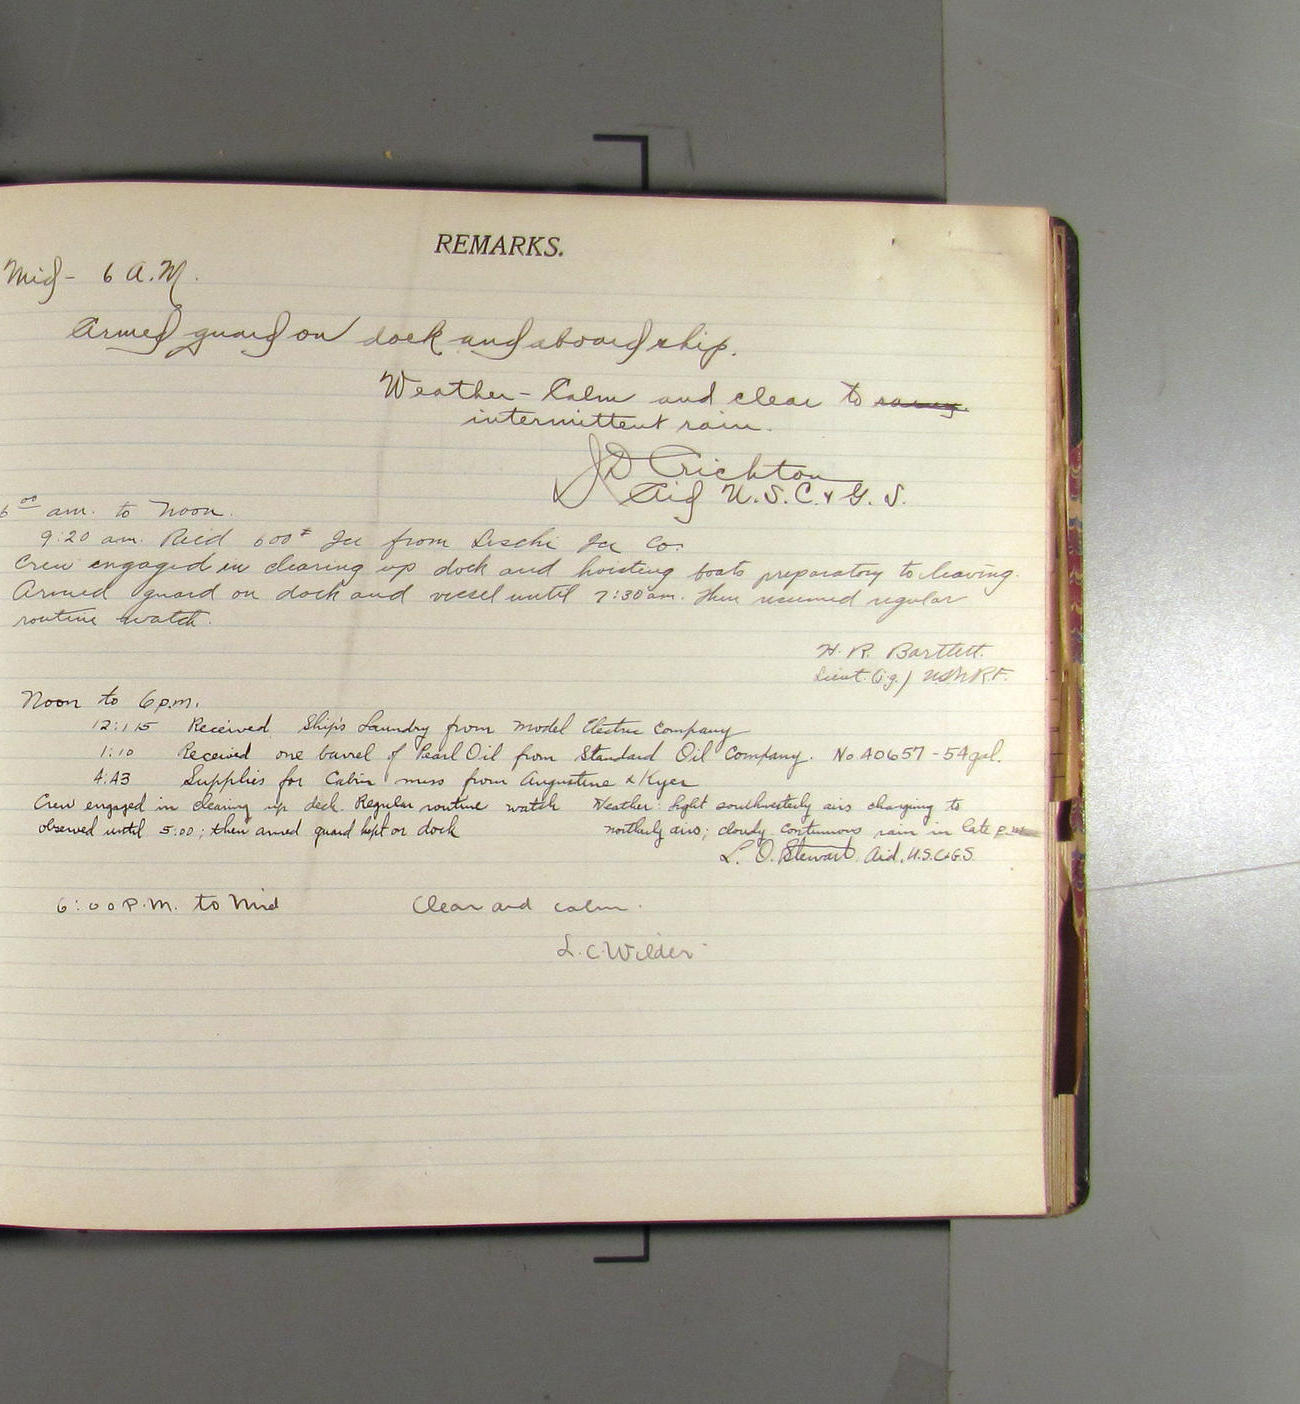 REMARKS.
Mid - 6 A.M.
Armed guard on dock and aboard ship.
Weather - Calm and clear to
intermittent rain.
J D Crichton
Aid U.S.C. & G. S.
6 00 am. to Noon.
9:20 am. Recd 600# Ice from Leschi Ice Co.
Crew engaged in clearing up dock and hoisting boats preparatory to leaving.
Armed guard on dock and vessel until 7:30 am. then resumed regular
routine watch.
H. R. Bartlett.
Lieut. (j.g.) USNRF.
Noon to 6 p.m.
12:15 Received Ship's Laundry from Model Electric Company
1:10 Received one barrel of Pearl Oil from Standard Oil Company. No A0657 - 54 gal.
4:43 Supplies for Cabin mess from Augustine & Kyer
Crew engaged in clearing up deck. Regular routine watch
observed until 5:00; then armed guard kept on dock
Weather: light southwesterly airs changing to
northerly airs; cloudy. continuous rain in late p.m.
L. O. Stewart. Aid, U.S.C&G.S.
6:00 P.M. to Mid Clear and calm.
L. C. Wilder